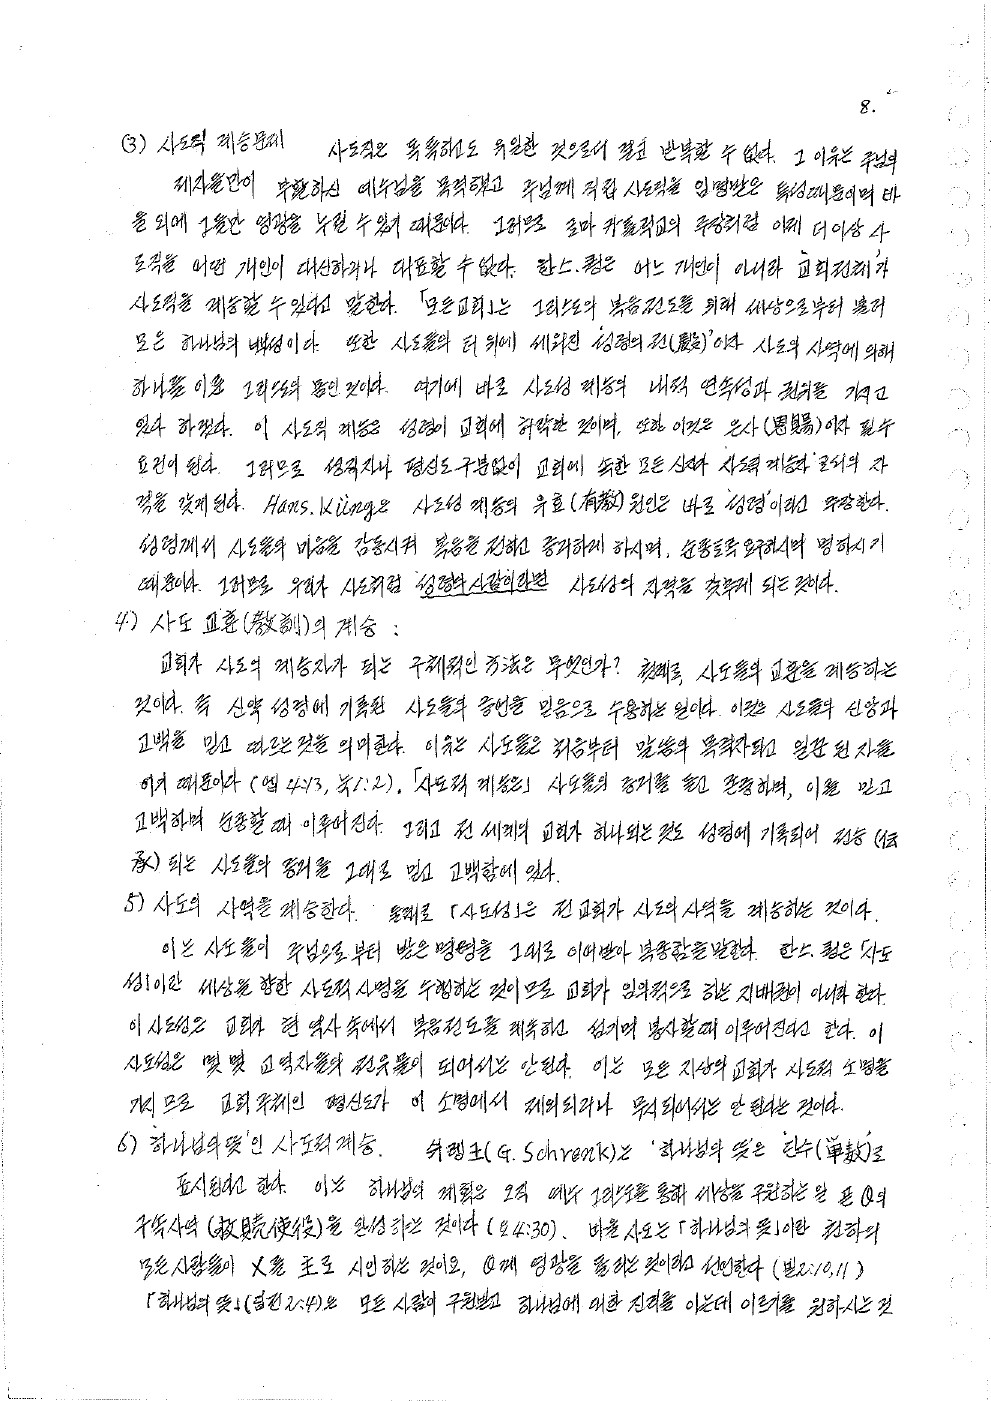 8.
(3) 사도적 계승문제 사도직은 독특하고도 유일한 것으로서 결코 반복할 수 없다. 그 이유는 주님의
제자들만이 부활하신 예수님을 목격하고 주님께 직접 사도직을 임명받은 특성때문이며 바
울 외에 그들만 영광을 누릴 수 있기 때문이다. 그러므로 로마 카톨릭교의 주장처럼 이제 더이상 사
도직을 어떤 개인이 대신하거나 대표할 수 없다. 한스.큉은 어느 개인이 아니라 '교회전체'가
사도직을 계승할 수 있다고 말한다. 「모든교회」는 그리스도의 복음전도를 위해 세상으로부터 불러
모은 하나님의 백성이다. 또한 사도들의 터 위에 세워진 '성령의 전(殿)'이자 사도의 사역에 의해
하나를 이룬 그리스도의 몸인 것이다. 여기에 바로 사도성 계승의 내적 연속성과 권위를 가지고
있다 하겠다. 이 사도적 계승은 성령이 교회에 허락한 것이며, 또한 이것은 은사(恩賜)이자 필수
요건이 된다. 그러므로 성직자나 평신도 구분없이 교회에 속한 모든 신자가 '사도적 계승자'로서의 자
격을 갖게된다. Hans. Küng은 사도성 계승의 유효(有效)원인은 바로 '성령'이라고 주장한다.
성령께서 사도들의 마음을 감동시켜 복음을 전하고 증거하게 하시며, 순종토록 요구하시며 명하시기
때문이다. 그러므로 우리가 사도처럼 성령의 사람이라면 사도성의 자격을 갖추게 되는 것이다.
4) 사도 교훈(敎訓)의 계승 :
교회가 사도의 계승자가 되는 구체적인 方法은 무엇인가? 첫째로, 사도들의 교훈을 계승하는
것이다. 즉 신약 성경에 기록된 사도들의 증언을 믿음으로 수용하는 일이다. 이것은 사도들의 신앙과
고백을 믿고 따르는 것을 의미한다. 이유는 사도들은 처음부터 말씀의 목격자되고 일꾼 된 자들
이기 때문이다 (엡 4:13, 눅1:2). 「사도적 계승은」 사도들의 증거를 듣고 존중하며, 이를 믿고
고백하며 순종할 때 이루어진다. 그리고 전 세계의 교회가 하나되는 것도 성경에 기록되어 전승 (伝
承) 되는 사도들의 증거를 그대로 믿고 고백함에 있다.
5) 사도의 사역을 계승한다. 둘째로 「사도성」은 전 교회가 사도의 사역을 계승하는 것이다.
이는 사도들이 주님으로 부터 받은 명령을 그대로 이어받아 복종함을 말한다. 한스.큉은 「사도
성」이란 세상을 향한 사도적 사명을 수행하는 것이므로 교회가 임의적으로 하는 지배권이 아니라 한다.
이 사도성은 교회가 현 역사 속에서 복음전도를 계속하고 섬기며 봉사할때 이루어진다고 한다. 이
사도성은 몇 몇 교역자들의 전유물이 되어서는 안된다. 이는 모든 지상의 교회가 사도적 소명을
가지므로 교회 주체인 평신도가 이 소명에서 제외되거나 무시되어서는 안 된다는 것이다.
6) '하나님의 뜻'인 사도적 계승. 쉬렝크(G. Schrenk)는 '하나님의 뜻'은 '단수(單數)'로
표시된다고 한다. 이는 하나님의 계획은 오직 예수 그리스도를 통해 세상을 구원하는 일 곧 θ의
구속사역 (救贖使役)을 완성하는 것이다 (요4:30). 바울 사도는 「하나님의 뜻」이란 천하의
모든사람들이 X를 主로 시인하는 것이요, θ께 영광을 돌리는것이라고 선언한다 (빌2:10,11)
「하나님의 뜻」(딤전2:4)은 모든 사람이 구원받고 하나님에 대한 진리를 아는데 이르기를 원하시는 것